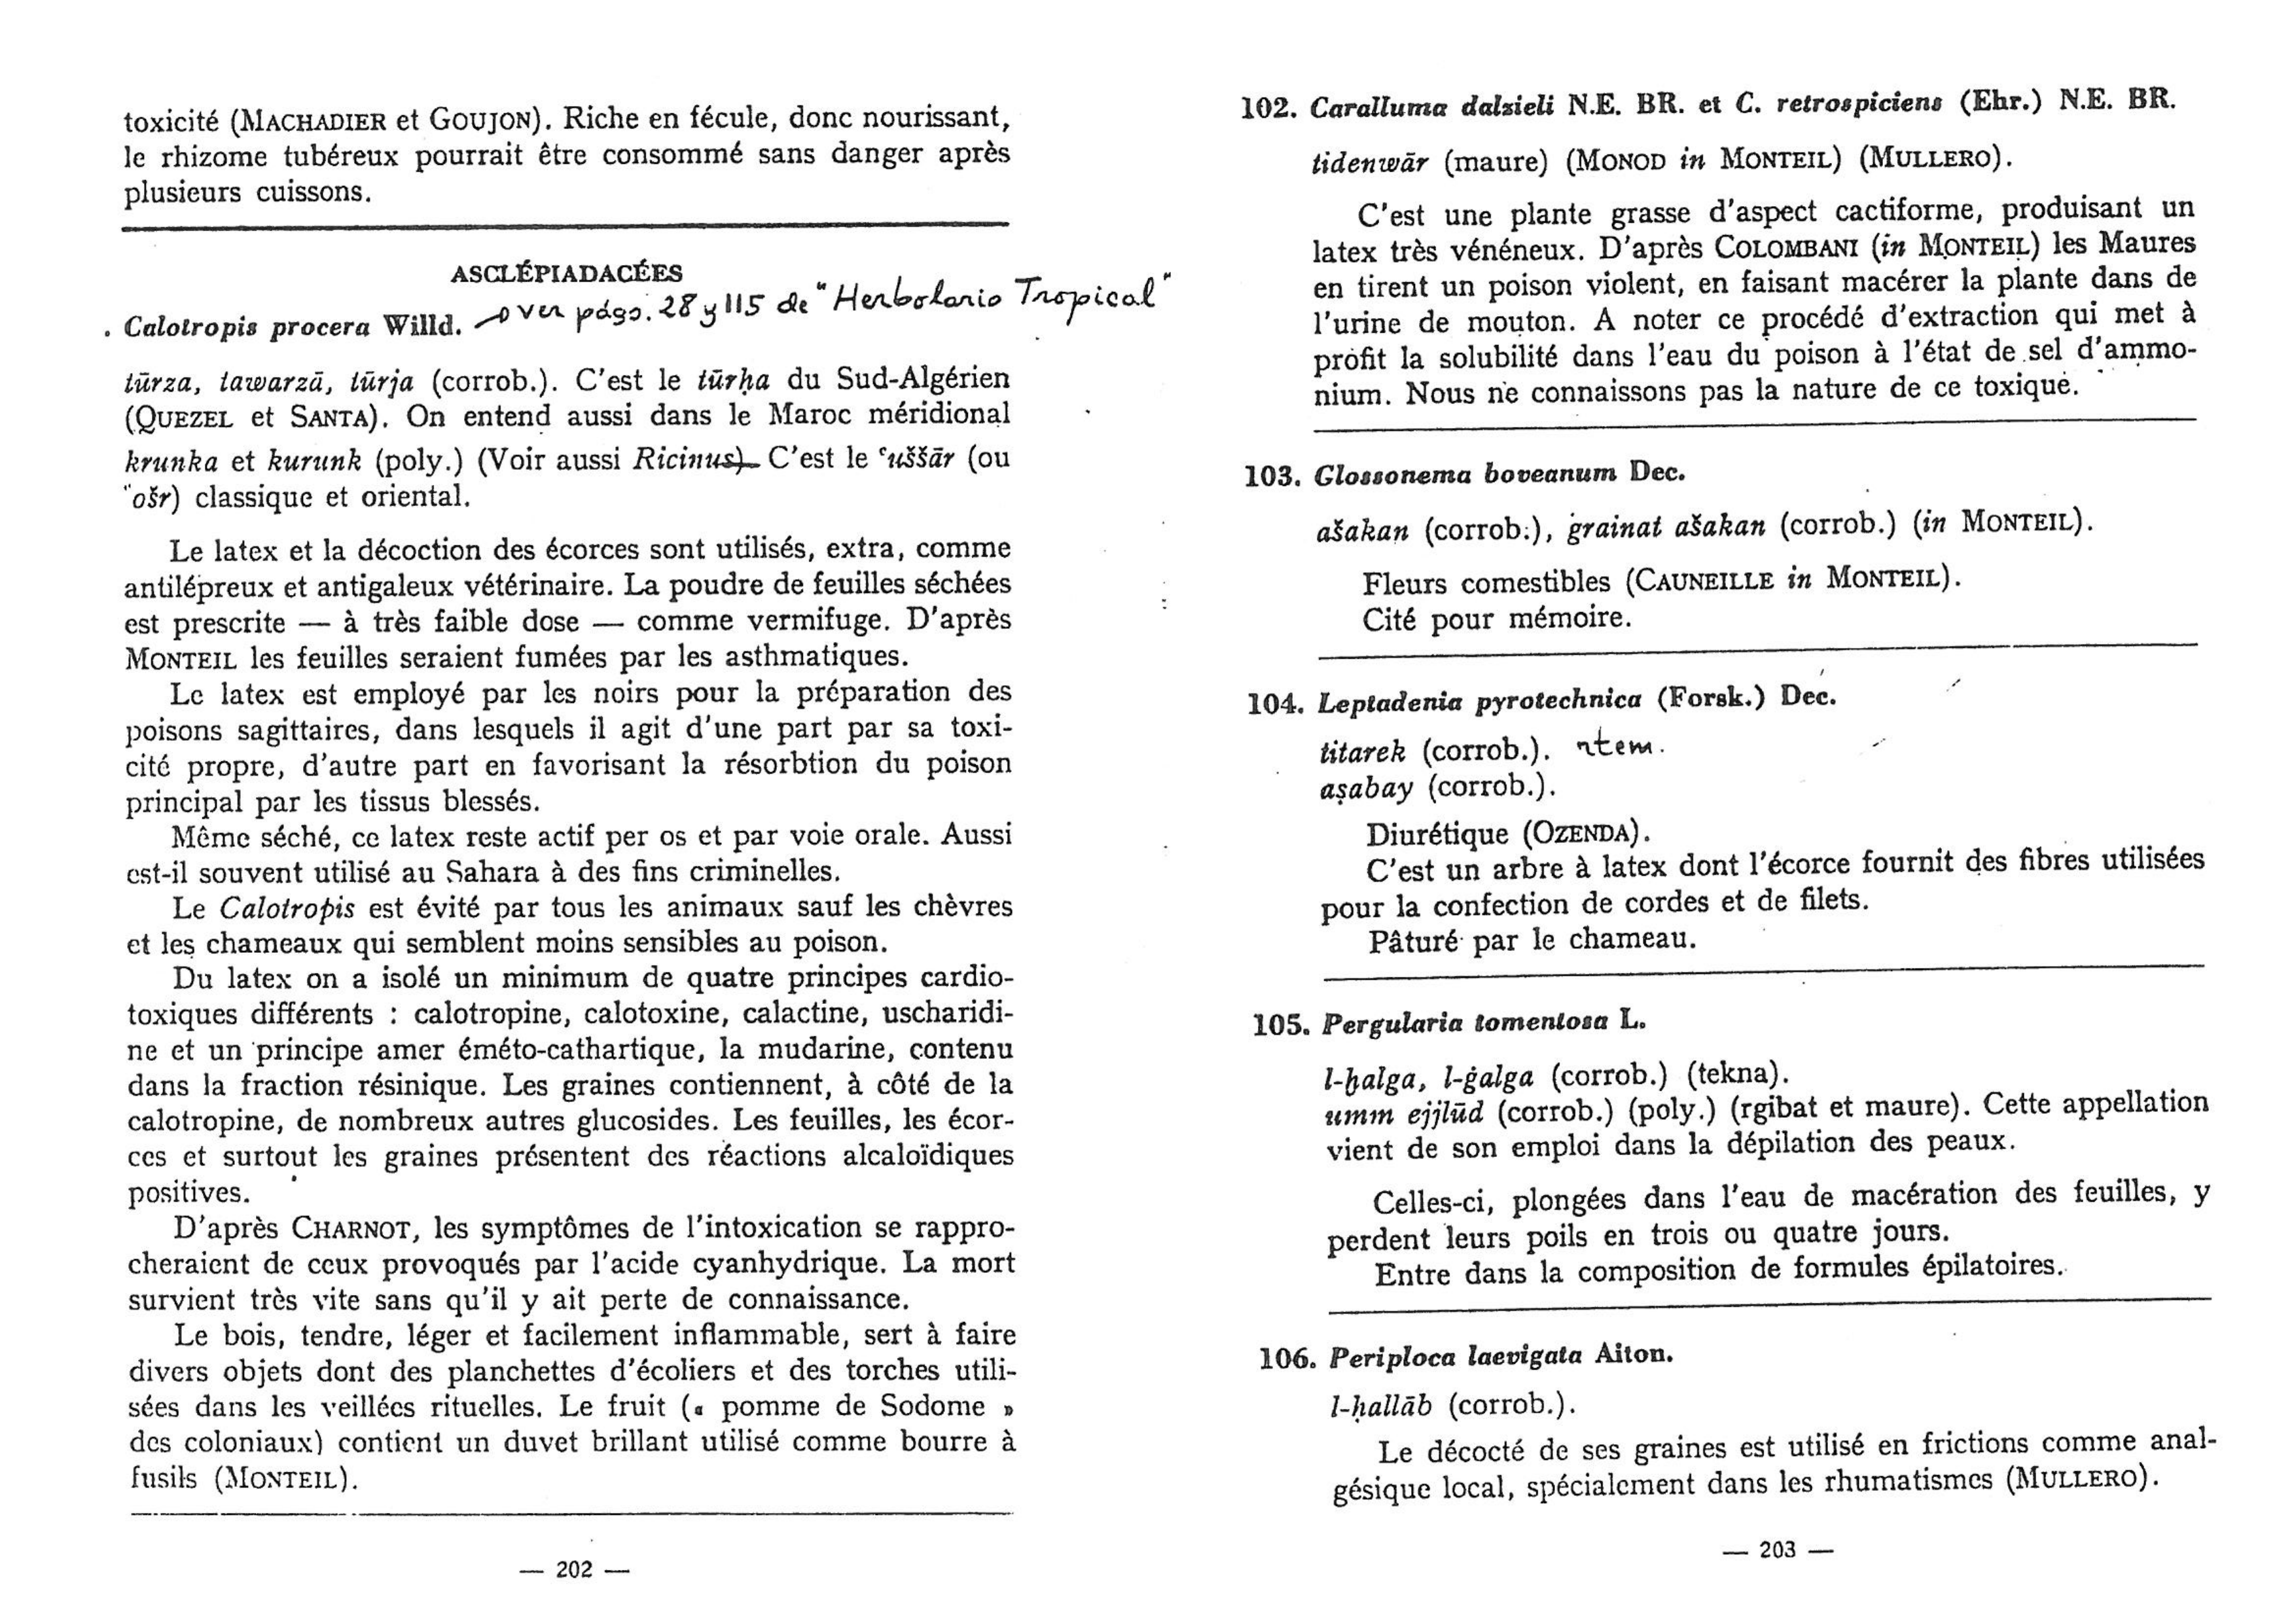 toxicité (MACHADIER et GOUJON). Riche en fécule, donc nourissant,
le rhizome tubéreux pourrait être consommé sans danger après
plusieurs cuissons.
ASCLÉPIADACÉES
. Calotropis procera Willd. ver págs. 28 y 115 de "Herbolario Tropical"
tūrza, tawarzā, tūrja (corrob.). C'est le tūrḥa du Sud-Algérien
(QUEZEL et SANTA). On entend aussi dans le Maroc méridional
krunka et kurunk (poly.) (Voir aussi Ricinus). C'est le ʿuššār (ou
ʿošr) classique et oriental.
Le latex et la décoction des écorces sont utilisés, extra, comme
antilépreux et antigaleux vétérinaire. La poudre de feuilles séchées
est prescrite — à très faible dose — comme vermifuge. D'après
MONTEIL les feuilles seraient fumées par les asthmatiques.
Le latex est employé par les noirs pour la préparation des
poisons sagittaires, dans lesquels il agit d'une part par sa toxi-
cité propre, d'autre part en favorisant la résorbtion du poison
principal par les tissus blessés.
Même séché, ce latex reste actif per os et par voie orale. Aussi
est-il souvent utilisé au Sahara à des fins criminelles.
Le Calotropis est évité par tous les animaux sauf les chèvres
et les chameaux qui semblent moins sensibles au poison.
Du latex on a isolé un minimum de quatre principes cardio-
toxiques différents : calotropine, calotoxine, calactine, uscharidi-
ne et un principe amer éméto-cathartique, la mudarine, contenu
dans la fraction résinique. Les graines contiennent, à côté de la
calotropine, de nombreux autres glucosides. Les feuilles, les écor-
ces et surtout les graines présentent des réactions alcaloïdiques
positives.
D'après CHARNOT, les symptômes de l'intoxication se rappro-
cheraient de ceux provoqués par l'acide cyanhydrique. La mort
survient très vite sans qu'il y ait perte de connaissance.
Le bois, tendre, léger et facilement inflammable, sert à faire
divers objets dont des planchettes d'écoliers et des torches utili-
sées dans les veillées rituelles. Le fruit (« pomme de Sodome »
des coloniaux) contient un duvet brillant utilisé comme bourre à
fusils (MONTEIL).
— 202 —
102. Caralluma dalzieli N.E. BR. et C. retrospiciens (Ehr.) N.E. BR.
tidenwār (maure) (MONOD in MONTEIL) (MULLERO).
C'est une plante grasse d'aspect cactiforme, produisant un
latex très vénéneux. D'après COLOMBANI (in MONTEIL) les Maures
en tirent un poison violent, en faisant macérer la plante dans de
l'urine de mouton. A noter ce procédé d'extraction qui met à
profit la solubilité dans l'eau du poison à l'état de sel d'ammo-
nium. Nous ne connaissons pas la nature de ce toxique.
103. Glossonema boveanum Dec.
ašakan (corrob.), ġrainat ašakan (corrob.) (in MONTEIL).
Fleurs comestibles (CAUNEILLE in MONTEIL).
Cité pour mémoire.
104. Leptadenia pyrotechnica (Forsk.) Dec.
titarek (corrob.). rtem.
aṣabay (corrob.).
Diurétique (OZENDA).
C'est un arbre à latex dont l'écorce fournit des fibres utilisées
pour la confection de cordes et de filets.
Pâturé par le chameau.
105. Pergularia tomentosa L.
l-ḫalga, l-ġalga (corrob.) (tekna).
umm ejjlūd (corrob.) (poly.) (rgibat et maure). Cette appellation
vient de son emploi dans la dépilation des peaux.
Celles-ci, plongées dans l'eau de macération des feuilles, y
perdent leurs poils en trois ou quatre jours.
Entre dans la composition de formules épilatoires.
106. Periploca laevigata Aiton.
l-ḥallāb (corrob.).
Le décocté de ses graines est utilisé en frictions comme anal-
gésique local, spécialement dans les rhumatismes (MULLERO).
— 203 —